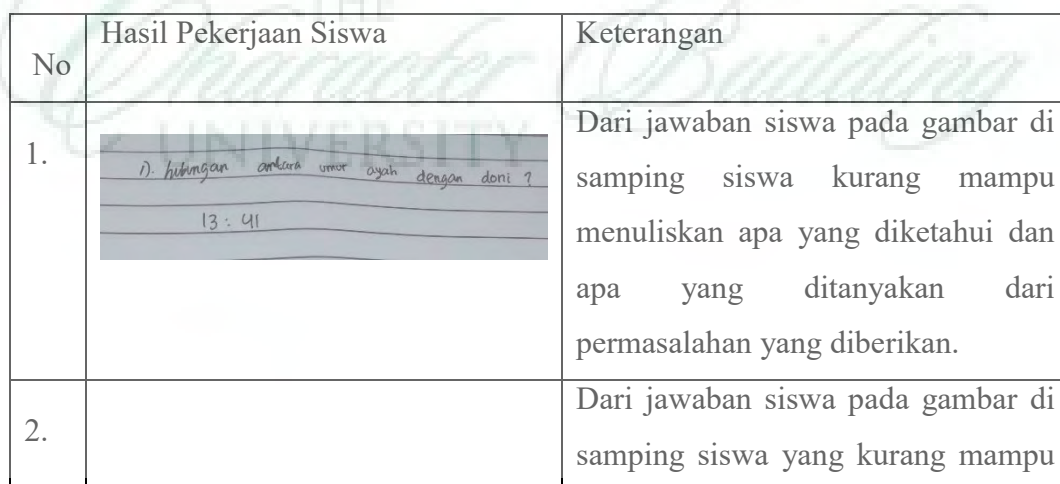 THE
Character Building
UNIVERSITY
No
Hasil Pekerjaan Siswa
Keterangan
1.
1). hubungan antara umur ayah dengan doni ?
13 : 41
Dari jawaban siswa pada gambar di
samping siswa kurang mampu
menuliskan apa yang diketahui dan
apa yang ditanyakan dari
permasalahan yang diberikan.
2.
Dari jawaban siswa pada gambar di
samping siswa yang kurang mampu